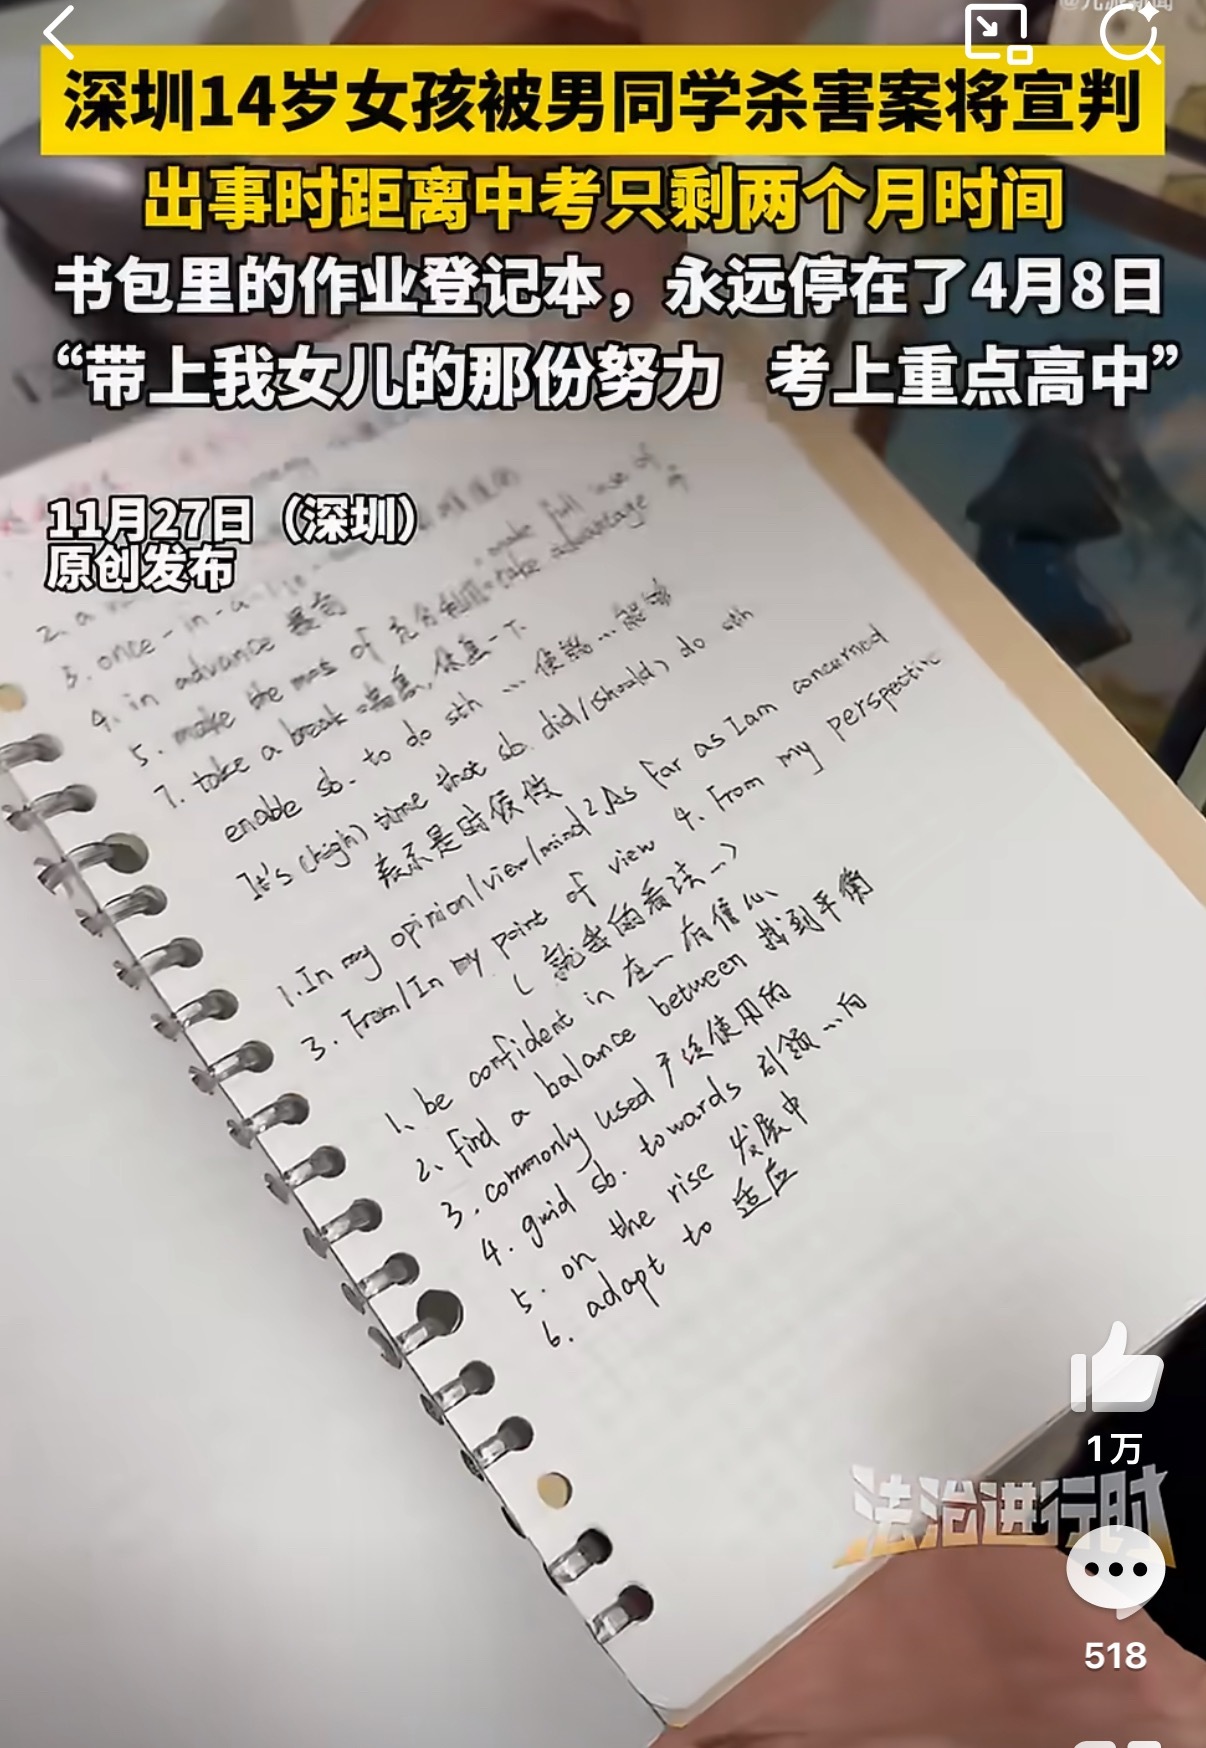 @九派新闻
深圳14岁女孩被男同学杀害案将宣判
出事时距离中考只剩两个月时间
书包里的作业登记本，永远停在了4月8日
“带上我女儿的那份努力 考上重点高中”
11月27日（深圳）
原创发布
make full use of
2. a
3. once-in-a-
4. in advance 提前
5. make the most of 充分利用=take advantage of
7. take a break 休息一下
enable sb. to do sth … 使能…能够
It's (high) time that sb. did/(should) do sth
表示是时候做
1. In my opinion/view/mind 2. As far as I am concerned
3. From/In my point of view 4. From my perspective
(就我的看法…)
1、be confident in 在…有信心
2、find a balance between 找到平衡
3. commonly used 广泛使用的
4. guid sb. towards 引领…向
5. on the rise 发展中
6. adapt to 适应
1万
法治进行时
518